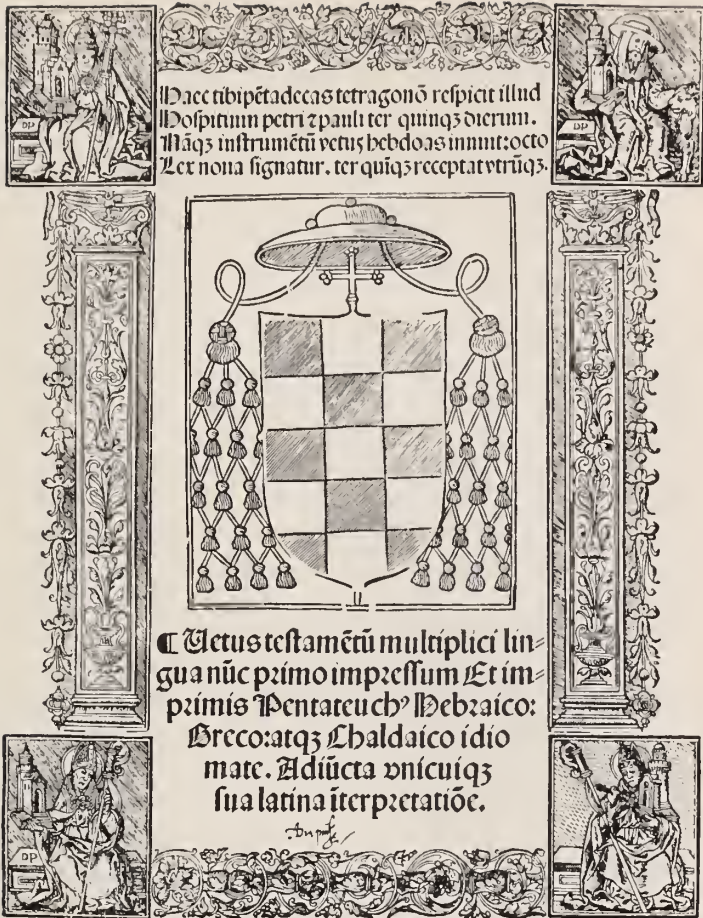 Haec tibi pētadecas tetragonō respicit illud
Hospitium petri ⁊ pauli ter quinqꝫ dierum.
Nāqꝫ instrumētū vetus hebdoas innuit: octo
Lex noua signatur. ter quīqꝫ receptat vtrūqꝫ.
DP
¶ Uetus testamētū multiplici lin⸗
gua nūc primo impressum Et im⸗
primis Pentateuchꝰ Hebraico:
Greco: atqꝫ Chaldaico idio
mate. Adiūcta vnicuiqꝫ
sua latina īterpretatiōe.
DP
DP